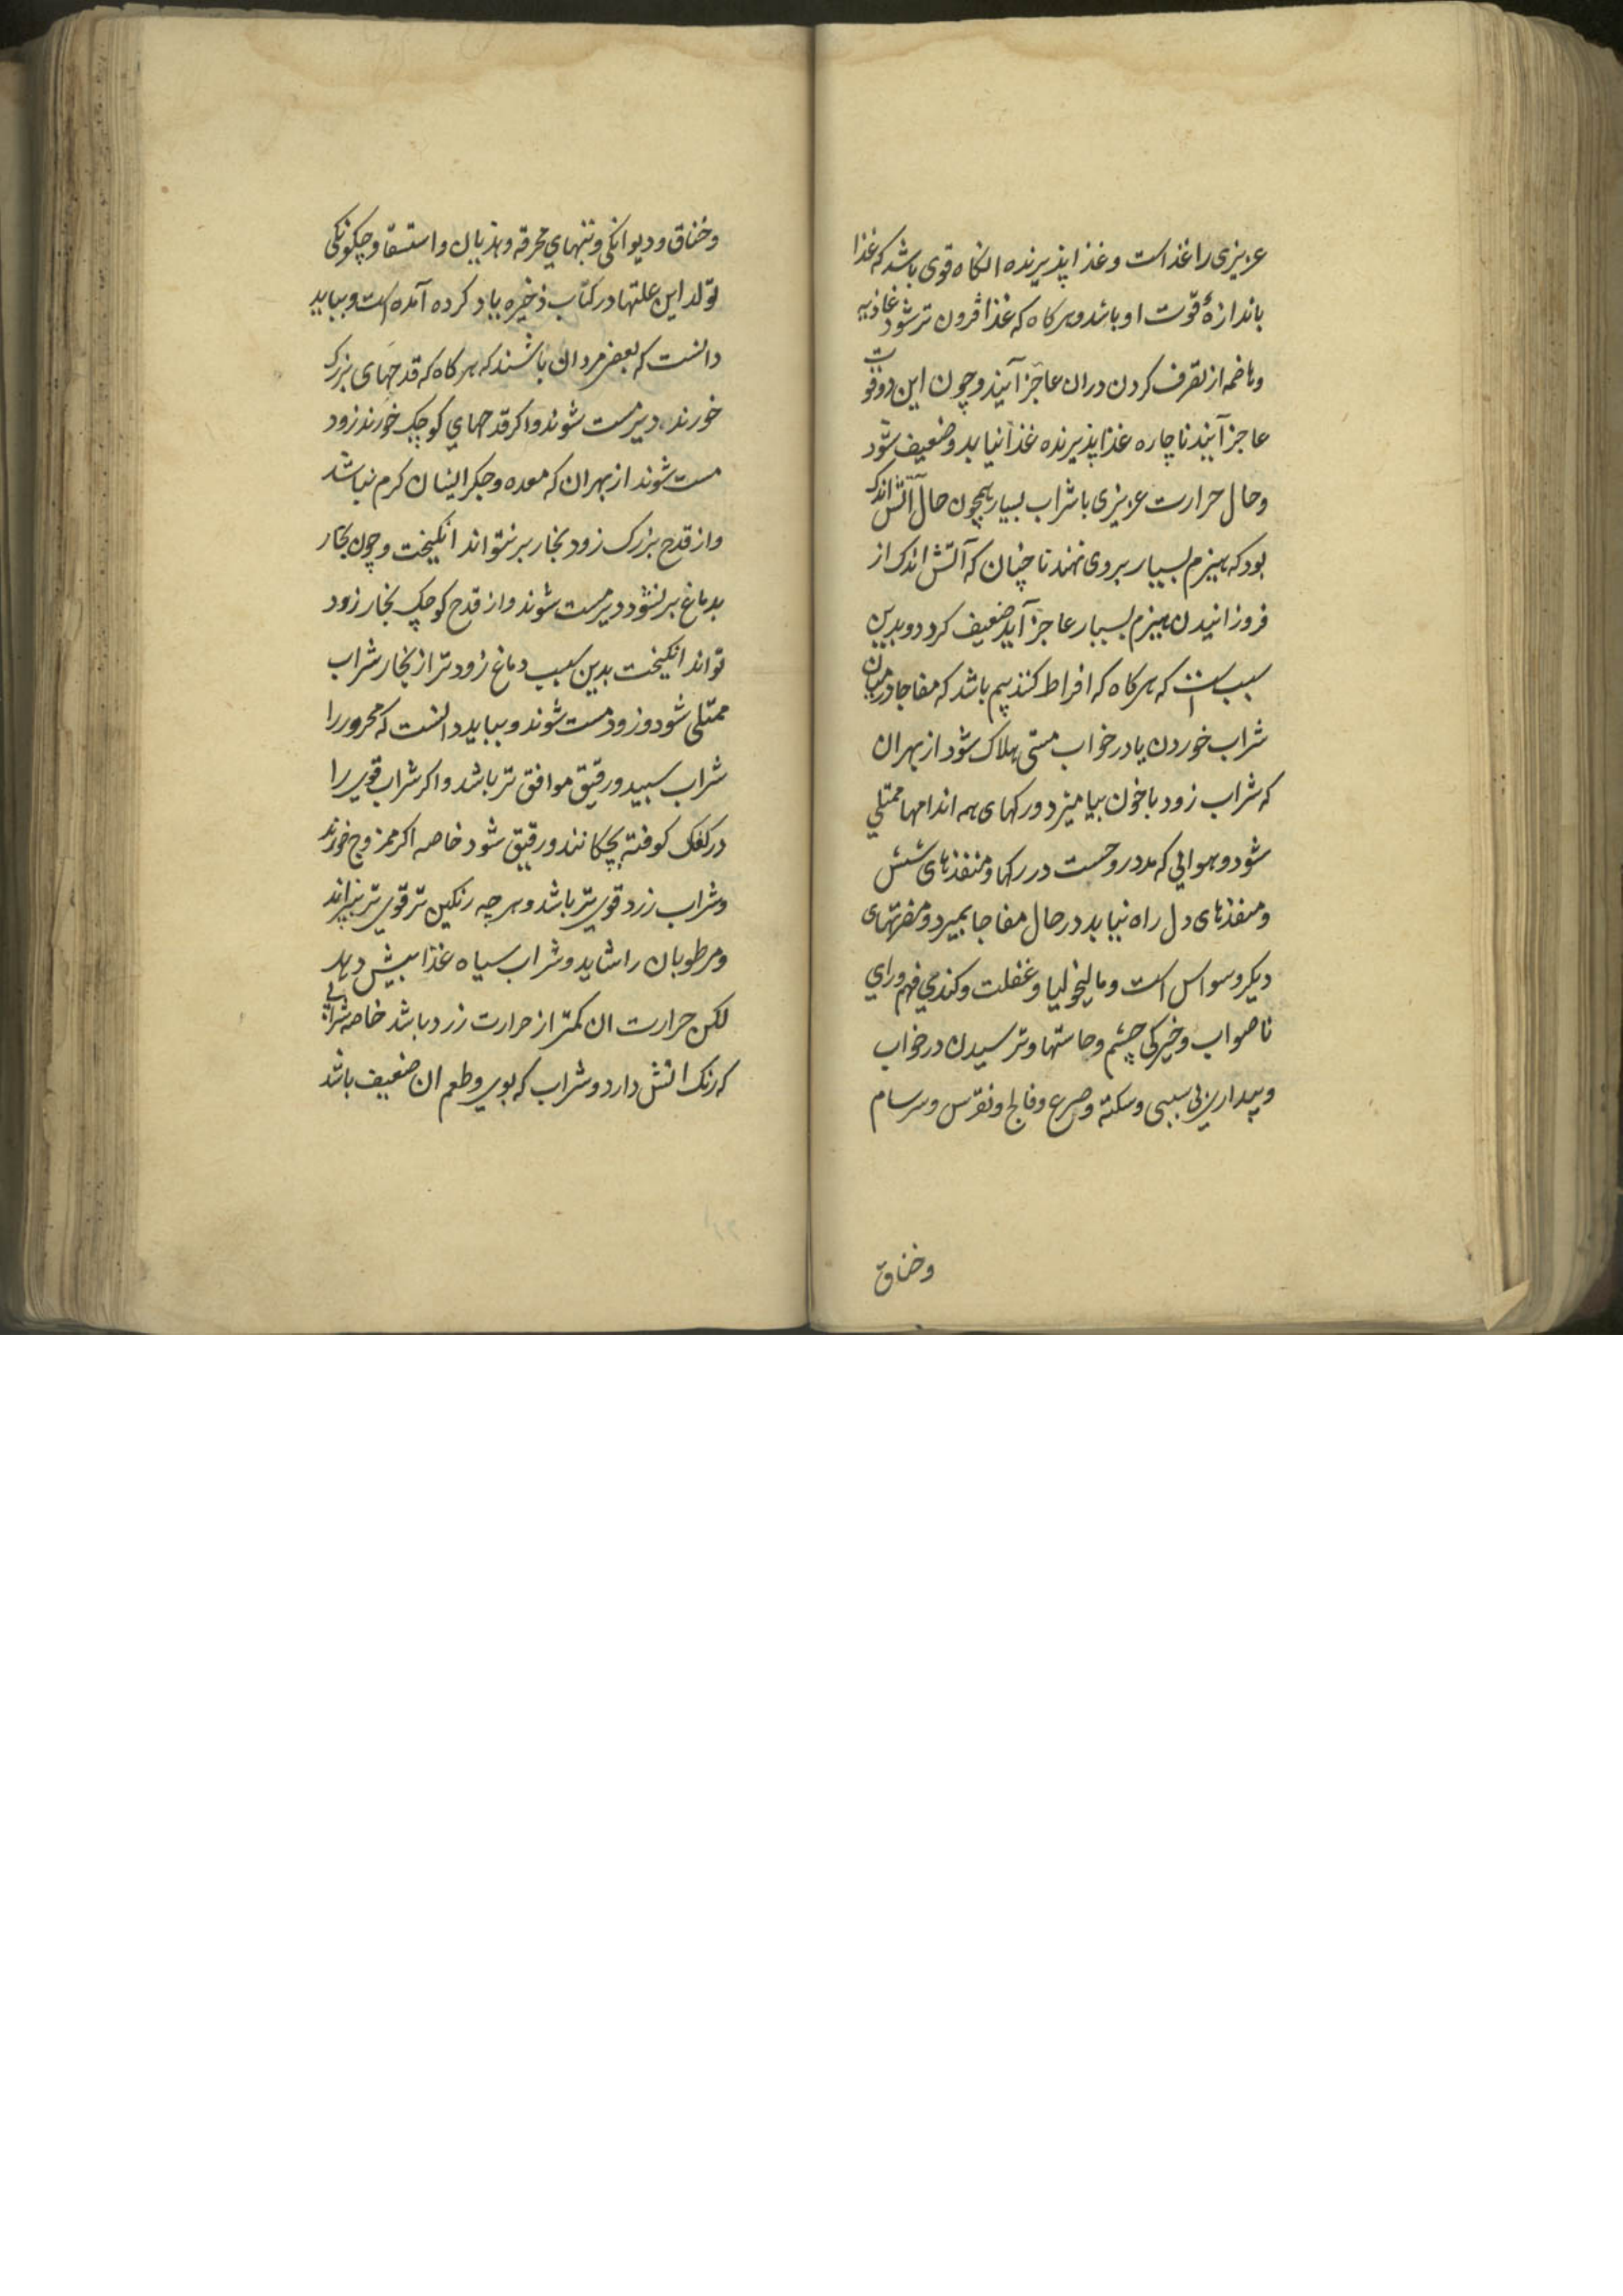 عزیزی را غذاست و غذا پذیرنده انکاه قوی باشد که غذا
باندازهٔ قوّت او باشد و هرکاه که غذا فزون تر شود غاذیه
و هاضمه از تصرف کردن دران عاجز آیند و چون این دو قوت
عاجز آیند ناچاره غذا پذیرنده غذا نیابد و ضعیف شود
و حال حرارت عزیزی با شراب بسیار همچون حال آتش اندک
بود که هیزم بسیار بروی نهند تا چنان که آتش اندک از
فروزانیدن هیزم بسیار عاجز آید ضعیف کردد و بدین
سبب است که هرکاه که افراط کنند بیم باشد که مفاجا در میان
شراب خوردن یا در خواب مستی هلاک شود از بهر ان
که شراب زود با خون بیامیزد و رکهای همه اندامها ممتلی
شود و هوایی که مدد روحست در رکها و منفذهای شش
و منفذهای دل راه نیابد در حال مفاجا بمیرد و مضرتهای
دیکر وسواس است و مالیخولیا و غفلت و کندی فهم و رای
ناصواب و خیرکی چشم و حاستها و ترسیدن در خواب
و بیداری بی سببی و سکته و صرع و فالج و نقرس و سرسام
وخناق
و خناق و دیوانکی و تبهای محرقه و هذیان و استسقا و چکونکی
تولّد این علتها در کتاب ذخیره یاد کرده آمده است و بباید
دانست که بعضی مردان باشند که هرکاه که قدحهای بزرک
خورند دیر مست شوند و اکر قدحهای کوچک خورند زود
مست شوند از بهر ان که معده و جکر ایشان کرم نباشد
و از قدح بزرک زود بخار بر نتواند انکیخت و چون بخار
بدماغ بر نشود دیر مست شوند و از قدح کوچک بخار زود
تواند انکیخت بدین سبب دماغ زودتر از بخار شراب
ممتلی شود و زود مست شوند و بباید دانست که محرور را
شراب سپید و رقیق موافق تر باشد و اکر شراب قوی را
در کعک کوفته بچکانند و رقیق شود خاصه اکر ممزوج خورند
و شراب زرد قوی تر باشد و هرچه رنکین تر قوی تر
و مرطوبان را شاید و شراب سیاه غذا بیش دهد
لکن حرارت ان کمتر از حرارت زرد باشد خاصه شرابی
که رنک اتش دارد و شراب که بوی و طعم ان ضعیف باشد